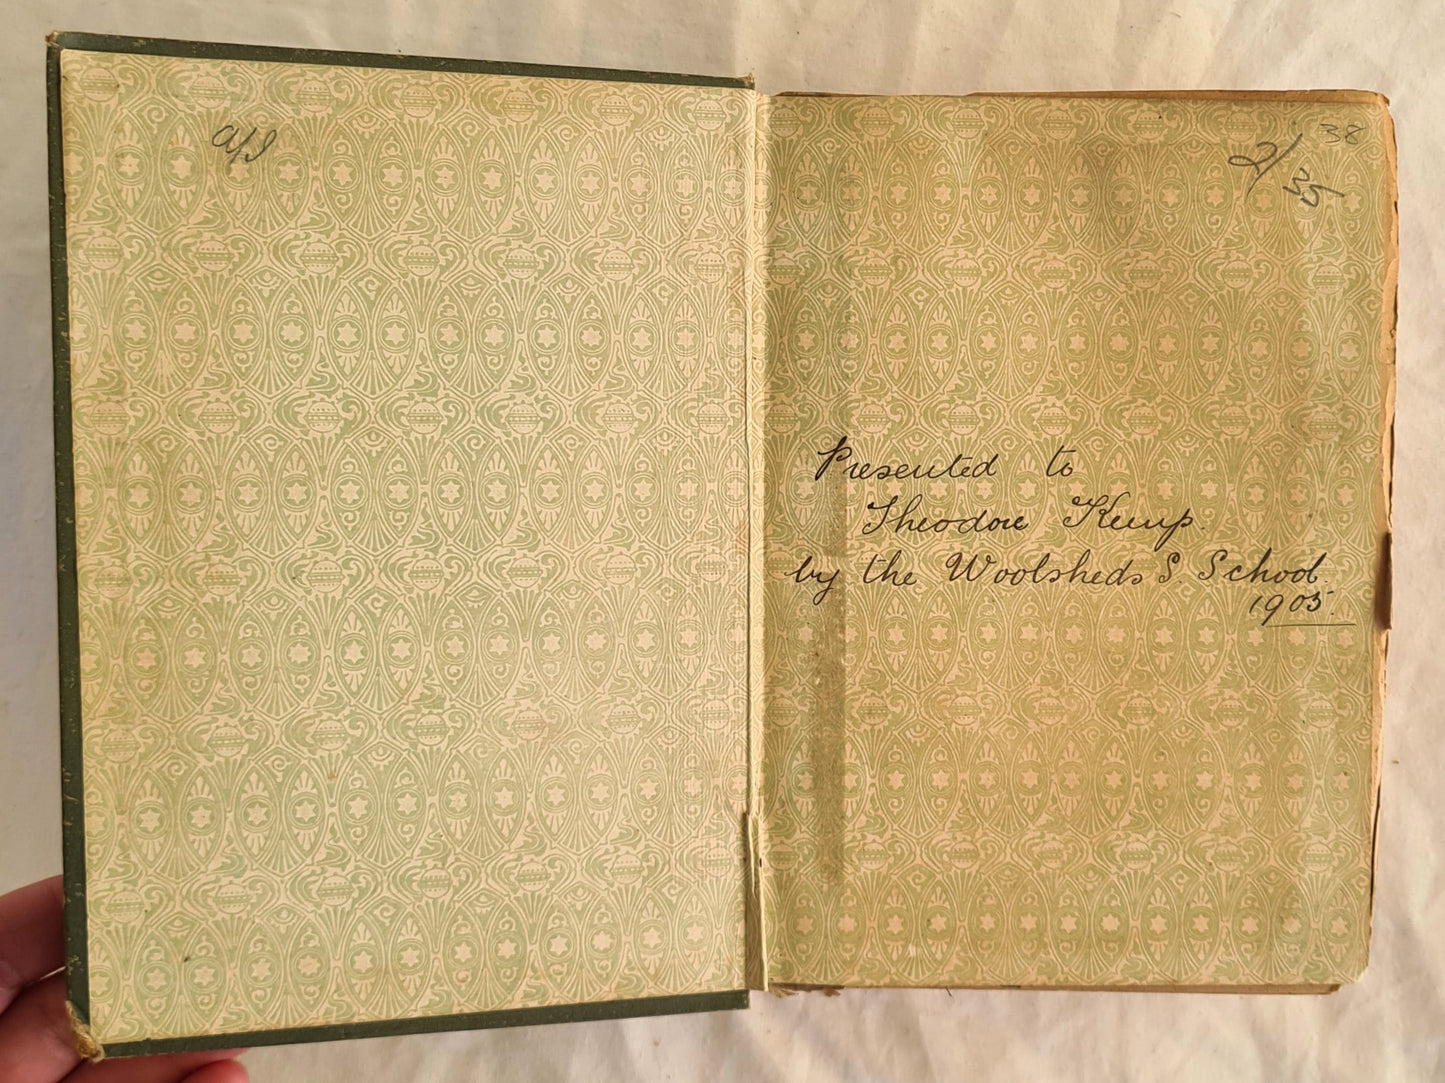 38
2/
35
Presented to
Theodore Kemp.
by the Woolsheds S. School.
1905.